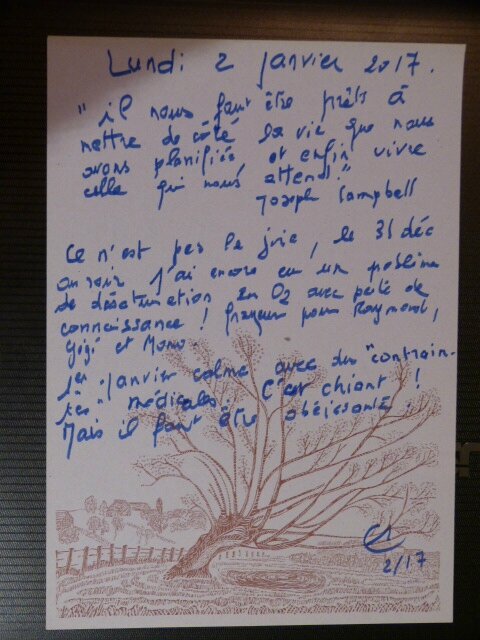 Lundi 2 janvier 2017.
" il nous faut être prêts à
mettre de côté la vie que nous
avons planifiée, et enfin vivre
celle qui nous attend."
Joseph Campbell
Ce n'est pas la joie, le 31 déc
au soir j'ai encore eu un problème
de désaturation en O2 avec perte de
connaissance ! frayeur pour Raymond,
Gigi et Momo
1er janvier calme avec des "contrain-
tes" médicales. C'est chiant !
Mais il faut être obéissante.
2/17